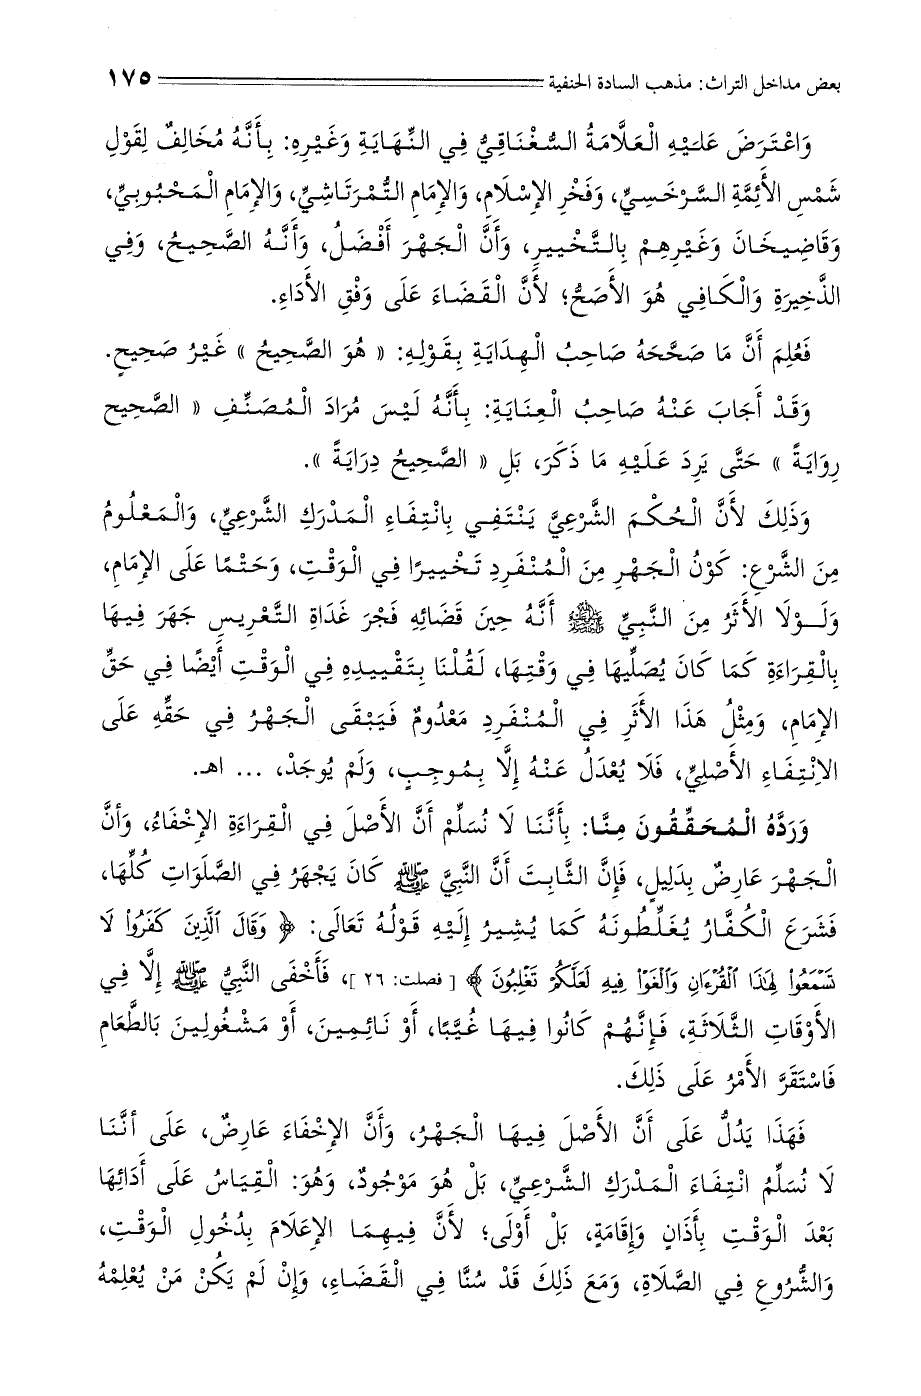 بعض مداخل التراث: مذهب السادة الحنفية ١٧٥
وَاعْتَرَضَ عَلَيْهِ الْعَلَّامَةُ السُّغْنَاقِيُّ فِي النِّهَايَةِ وَغَيْرِهِ: بِأَنَّهُ مُخَالِفٌ لِقَوْلِ
شَمْسِ الأَئِمَّةِ السَّرَخْسِيِّ، وَفَخْرِ الإِسْلَامِ، وَالإِمَامِ التُّمُرْتَاشِيِّ، وَالإِمَامِ الْمَحْبُوبِيِّ،
وَقَاضِيخَانَ وَغَيْرِهِمْ بِالتَّخْيِيرِ، وَأَنَّ الْجَهْرَ أَفْضَلُ، وَأَنَّهُ الصَّحِيحُ، وَفِي
الذَّخِيرَةِ وَالْكَافِي هُوَ الأَصَحُّ؛ لأَنَّ الْقَضَاءَ عَلَى وَفْقِ الأَدَاءِ.
فَعُلِمَ أَنَّ مَا صَحَّحَهُ صَاحِبُ الْهِدَايَةِ بِقَوْلِهِ: « هُوَ الصَّحِيحُ » غَيْرُ صَحِيحٍ.
وَقَدْ أَجَابَ عَنْهُ صَاحِبُ الْعِنَايَةِ: بِأَنَّهُ لَيْسَ مُرَادَ الْمُصَنِّفِ « الصَّحِيح
رِوَايَةً » حَتَّى يَرِدَ عَلَيْهِ مَا ذَكَرَ، بَلِ « الصَّحِيحُ دِرَايَةً ».
وَذَلِكَ لأَنَّ الْحُكْمَ الشَّرْعِيَّ يَنْتَفِي بِانْتِفَاءِ الْمَدْرَكِ الشَّرْعِيِّ، وَالْمَعْلُومُ
مِنَ الشَّرْعِ: كَوْنُ الْجَهْرِ مِنَ الْمُنْفَرِدِ تَخْيِيرًا فِي الْوَقْتِ، وَحَتْمًا عَلَى الإِمَامِ،
وَلَوْلَا الأَثَرُ مِنَ النَّبِيِّ ﷺ أَنَّهُ حِينَ قَضَائِهِ فَجْرَ غَدَاةِ التَّعْرِيسِ جَهَرَ فِيهَا
بِالْقِرَاءَةِ كَمَا كَانَ يُصَلِّيهَا فِي وَقْتِهَا، لَقُلْنَا بِتَقْيِيدِهِ فِي الْوَقْتِ أَيْضًا فِي حَقِّ
الإِمَامِ، وَمِثْلُ هَذَا الأَثَرِ فِي الْمُنْفَرِدِ مَعْدُومٌ فَيَبْقَى الْجَهْرُ فِي حَقِّهِ عَلَى
الِانْتِفَاءِ الأَصْلِيِّ، فَلَا يُعْدَلُ عَنْهُ إِلَّا بِمُوجِبٍ، وَلَمْ يُوجَدْ، ... اهـ.
وَرَدَّهُ الْمُحَقِّقُونَ مِنَّا: بِأَنَّنَا لَا نُسَلِّمُ أَنَّ الأَصْلَ فِي الْقِرَاءَةِ الإِخْفَاءُ، وَأنَّ
الْجَهْرَ عَارِضٌ بِدَلِيلٍ، فَإِنَّ الثَّابِتَ أَنَّ النَّبِيَّ ﷺ كَانَ يَجْهَرُ فِي الصَّلَوَاتِ كُلِّهَا،
فَشَرَعَ الْكُفَّارُ يُغَلِّطُونَهُ كَمَا يُشِيرُ إِلَيْهِ قَوْلُهُ تَعَالَى: ﴿ وَقَالَ ٱلَّذِينَ كَفَرُواْ لَا
تَسْمَعُواْ لِهَٰذَا ٱلْقُرْءَانِ وَٱلْغَوْاْ فِيهِ لَعَلَّكُمْ تَغْلِبُونَ ﴾ [ فصلت: ٢٦ ]، فَأَخْفَى النَّبِيُّ ﷺ إِلَّا فِي
الأَوْقَاتِ الثَّلَاثَةِ، فَإِنَّهُمْ كَانُوا فِيهَا غُيَّبًا، أَوْ نَائِمِينَ، أَوْ مَشْغُولِينَ بَالطَّعَامِ
فَاسْتَقَرَّ الأَمْرُ عَلَى ذَلِكَ.
فَهَذَا يَدُلُّ عَلَى أَنَّ الأَصْلَ فِيهَا الْجَهْرُ، وَأَنَّ الإِخْفَاءَ عَارِضٌ، عَلَى أنَّنَا
لَا نُسَلِّمُ انْتِفَاءَ الْمَدْرَكِ الشَّرْعِيِّ، بَلْ هُوَ مَوْجُودٌ، وَهُوَ: الْقِيَاسُ عَلَى أَدَائِهَا
بَعْدَ الْوَقْتِ بِأَذَانٍ وَإِقَامَةٍ، بَلْ أَوْلَى؛ لأَنَّ فِيهِمَا الإِعْلَامَ بِدُخُولِ الْوَقْتِ،
وَالشُّرُوعِ فِي الصَّلَاةِ، وَمَعَ ذَلِكَ قَدْ سُنَّا فِي الْقَضَاءِ، وَإِنْ لَمْ يَكُنْ مَنْ يُعْلِمْهُ